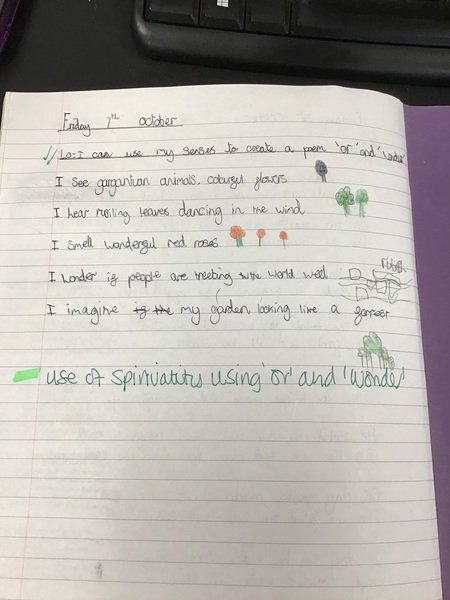 Friday 7th October
LO: I can use my senses to create a poem 'or' and 'wonder'
I see gargantian animals, coburful flowers
I hear rusiling leaves dancing in the wind
I smell wonderful red roses
I wonder if people are treeting the world weel
I imagine my garden looking like a
use of Spirivality using 'or' and 'wonder'